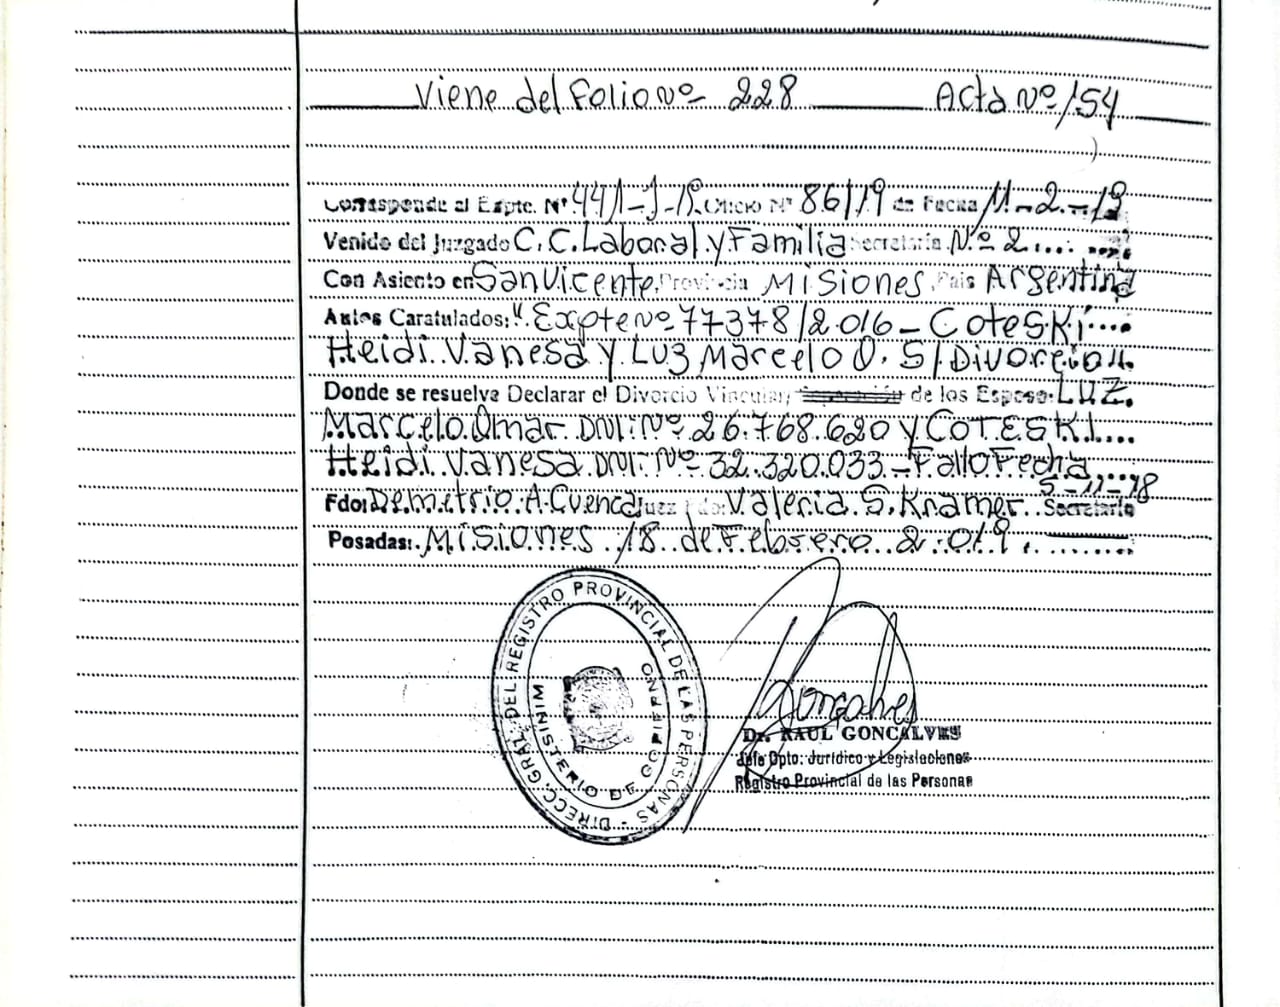 Viene del Folio Nº 228 Acta Nº 154
Corresponde al Expte. Nº 441-J-19. Oficio Nº 86/19 de Fecha 11-2-19
Venido del Juzgado C.C. Laboral y Familia Secretaría Nº 2
Con Asiento en San Vicente Provincia Misiones País Argentina
Autos Caratulados: "Expte nº 77378/2016 - Coteski
Heidi Vanesa y Luz Marcelo O. S/Divorcio".
Donde se resuelva Declarar el Divorcio Vincular, de los Esposos: LUZ.
Marcelo Omar DNI: Nº 26.768.620 y COTESKI
Heidi Vanesa DNI: Nº 32.320.033 - Fallo Fecha
5-11-18
Fdo: Demetrio A. Cuenca Juez Fdo: Valeria S. Kramer Secretario
Posadas: Misiones 18 de Febrero 2.019.
DIRECC. GRAL. DEL REGISTRO PROVINCIAL DE LAS PERSONAS -
MINISTERIO DE GOBIERNO
Goncalves
Dr. RAUL GONCALVES
Jefe Dpto: Jurídico y Legislaciones
Registro Provincial de las Personas